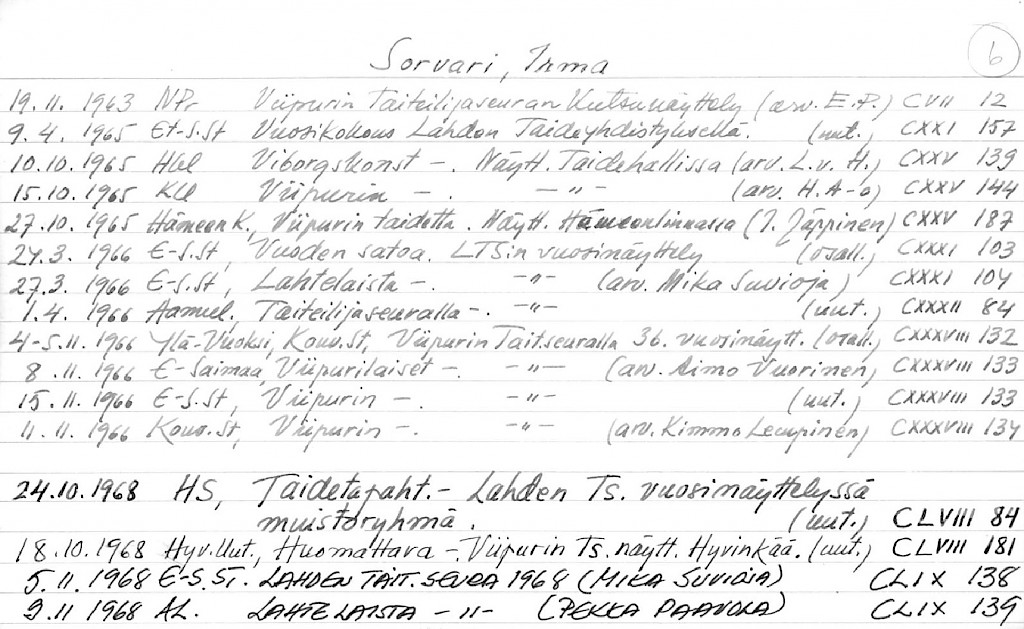 6
Sorvari, Irma
19.11. 1963 NPr Viipurin Taiteilijaseuran Kutsunäyttely (arv. E.P.) CVII 12
9.4. 1965 Et-S.St Vuosikokous Lahden Taideyhdistyksellä. (uut.) CXXI 157
10.10. 1965 Hbl Viborgskonst -. Näytt. Taidehallissa (arv. L.v. H.) CXXV 139
15.10. 1965 KU Viipurin -. -"- (arv. H.A-o) CXXV 144
27.10. 1965 Hämeen K., Viipurin taidetta. Näytt. Hämeenlinnassa (J. Jäppinen) CXXV 187
24.3. 1966 E-S.St, Vuoden satoa. LTS:n vuosinäyttely (osall.) CXXXI 103
27.3. 1966 E-S.St, Lahtelaista -. -"- (arv. Mika Suvioja) CXXXI 104
1.4. 1966 Aamul. Taiteilijaseuralla -. -"- (uut.) CXXXII 84
4-5.11. 1966 Ylä-Vuoksi, Kouv.St, Viipurin Taitseuralla 36. vuosinäytt. (osall.) CXXXVIII 132
8.11. 1966 E-Saimaa, Viipurilaiset -. -"- (arv. Aimo Vuorinen) CXXXVIII 133
15.11. 1966 E-S.St, Viipurin -. -"- (uut.) CXXXVIII 133
11.11. 1966 Kouv.St, Viipurin -. -"- (arv. Kimmo Lempinen) CXXXVIII 134
24.10.1968 HS, Taidetapaht. - Lahden Ts. vuosinäyttelyssä
muistoryhmä. (uut.) CLVIII 84
18.10.1968 Hyv.Uut., Huomattava - Viipurin Ts. näytt. Hyvinkää. (uut.) CLVIII 181
5.11. 1968 E-S.ST. LAHDEN TAIT. SEURA 1968 (MIKA SUVIOJA) CLIX 138
9.11 1968 AL. LAHTELAISTA -"- (PEKKA PAAVOLA) CLIX 139